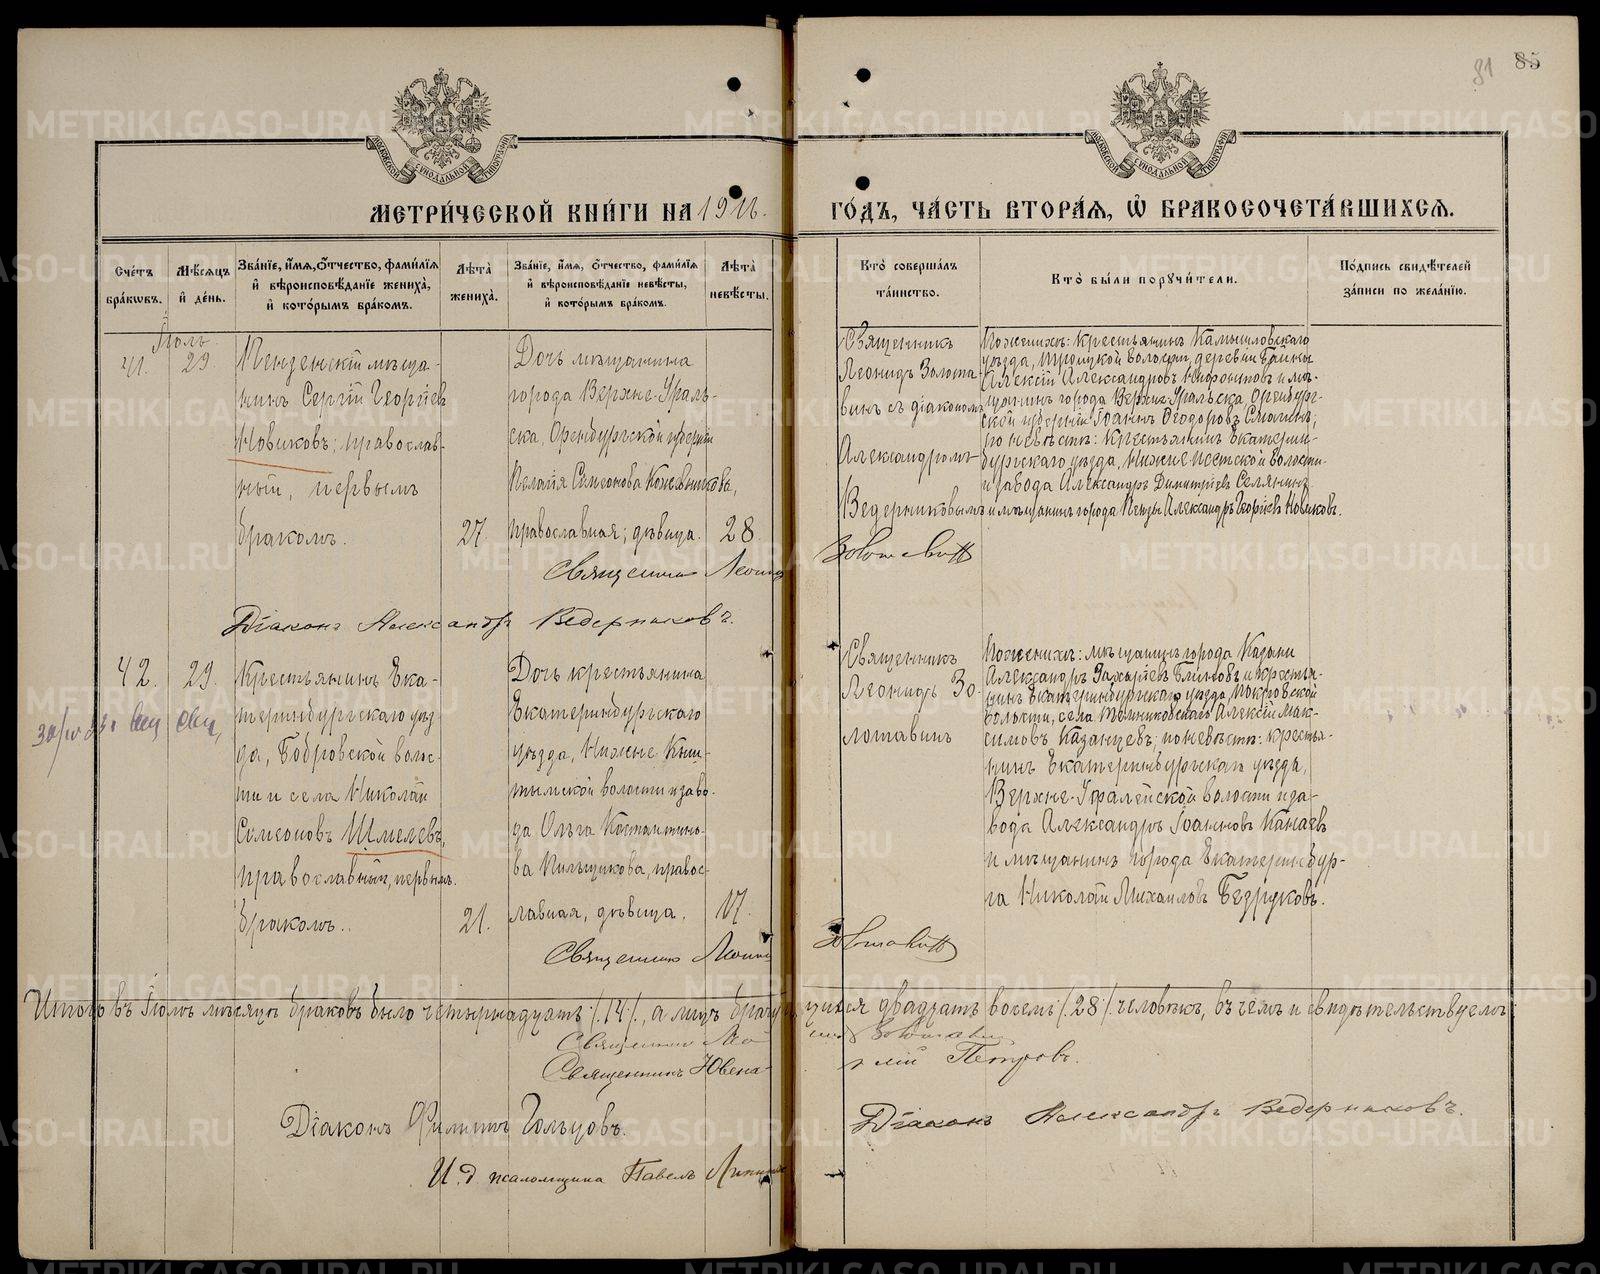 81 85
МОСКОВСКОЙ СѴНОДАЛЬНОЙ ТИПОГРАФІИ
МОСКОВСКОЙ СѴНОДАЛЬНОЙ ТИПОГРАФІИ
МЕТРИ́ЧЕСКОЙ КНИ́ГИ НА 1916. ГО́ДЪ, ЧА́СТЬ ВТОРА́Я, Ѡ҆ БРАКОСОЧЕТА́ВШИХСЯ.
Сче́тъ бра́ковъ.
Мѣ́сяцъ и҆ де́нь.
Зва́нїе, и҆́мя, ѻ҆́тчество, фами́лїя
и҆ вѣроисповѣ́данїе жениха̀,
и҆ кото́рымъ бра́комъ.
Лѣ́та̀ жениха̀.
Зва́нїе, и҆́мя, ѻ҆́тчество, фами́лїя
и҆ вѣроисповѣ́данїе невѣ́сты,
и҆ кото́рымъ бра́комъ.
Лѣ́та̀ невѣ́сты.
Кто̀ соверша́лъ
та́инство.
Кто̀ бы́ли поручи́тели.
По́дпись свидѣ́телей
за́писи по жела́нїю.
Іюль.
41. 29.
Пензенскій мѣща-
нинъ Сергій Георгіев
Новиковъ, православ-
ный, первымъ
бракомъ.
27
Дочь мѣщанина
города Верхне-Ураль-
ска, Оренбургской губерніи
Пелагія Симеонова Кожевникова,
православная; дѣвица.
28.
Священникъ
Леонидъ Золота-
винъ съ діакономъ
Александромъ
Ведерниковымъ
По женихѣ: крестьянинъ Камышловскаго
уѣзда, Троицкой волости, деревни
Алексій Александровъ и мѣ-
щанинъ города Верхне-Уральска Оренбург-
ской губерніи Іоаннъ Ѳеодоровъ
по невѣстѣ: крестьянинъ Екатерин-
бургскаго уѣзда, Нижне-Исетской волости
и завода Александръ Димитріевъ Селянинъ
и мѣщанинъ города Пензы Александръ Георгіевъ Новиковъ.
Священникъ Леонидъ Золотавинъ
Діаконъ Александръ Ведерниковъ.
42. 29.
Крестьянинъ Ека-
теринбургскаго уѣз-
да, Бобровской волос-
ти и села Николай
Симеоновъ Шмелевъ,
православный, первымъ
бракомъ.
21.
Дочь крестьянина
Екатеринбургскаго
уѣзда, Нижне-Кыш-
тымской волости и заво-
да Ольга Константино-
ва Пильщикова, правос-
лавная, дѣвица.
17.
Священникъ
Леонидъ Зо-
лотавинъ
По женихѣ: мѣщанинъ города Казани
Александръ Захаріевъ Блиновъ и крестья-
нинъ Екатеринбургскаго уѣзда, Покровской
волости, села Алексій Мак-
симовъ Казанцевъ; по невѣстѣ: крестья-
нинъ Екатеринбургскаго уѣзда,
Верхне-Уфалейской волости и за-
вода Александръ Іоанновъ Канаевъ
и мѣщанинъ города Екатеринбур-
га Николай Михаиловъ Безруковъ.
Священникъ Леонидъ Золотавинъ
Итого въ Іюлѣ мѣсяцѣ браковъ было четырнадцать /.14/., а лицъ брачущихся двадцать восемь /.28./ человѣкъ, въ чемъ и свидѣтельствуемъ:
Священникъ Леонидъ Золотавинъ
Священникъ Ювеналій Петровъ.
Діаконъ Филиппъ Гольцовъ. Діаконъ Александръ Ведерниковъ.
И. д. псаломщика Павелъ
METRIKI.GASO-URAL.RU